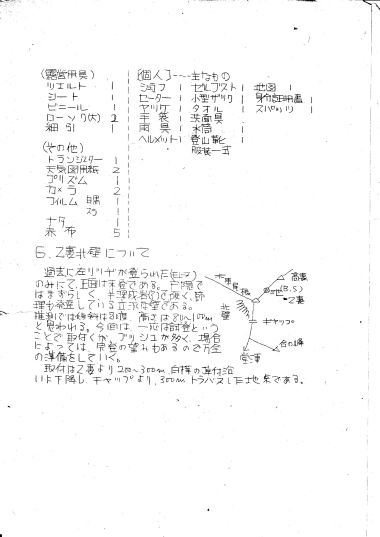 (露営用具)
ツエルト 1
シート 1
ビニール 1
ローソク(大) 2
細引 1
(その他)
トランジスター 1
天気図用紙 2
プリズム 1
カメラ 2
フィルム 白黒 1
スラ 1
ナタ 1
赤布 5
[個人]----主なもの
シュラフ 1
セーター 1
ヤッケ 1
手袋 1
雨具 1
ヘルメット 1
セルブスト 1
小型ザック 1
タオル 1
洗面具
水筒
登山靴
服装一式
地図 1
身分証明書 1
スパッツ 1
6. Z妻北壁について
過去に左リッヂが登られた
のみにて、正面は未登である。戸隠で
はまずらしく、
している立派な壁である。
推測では傾斜は80度、高さは80〜100m
と思われる。今回は、一応は試登という
ことで取付くが、ブッシュが多く、場合
によっては、完登の望みもあるので万全
の準備をしていく。
取付はZ妻より200〜300m
に下降し、キャップより、300mトラバースした地点である。
高妻
(B.S)
Z妻
北壁
キャップ